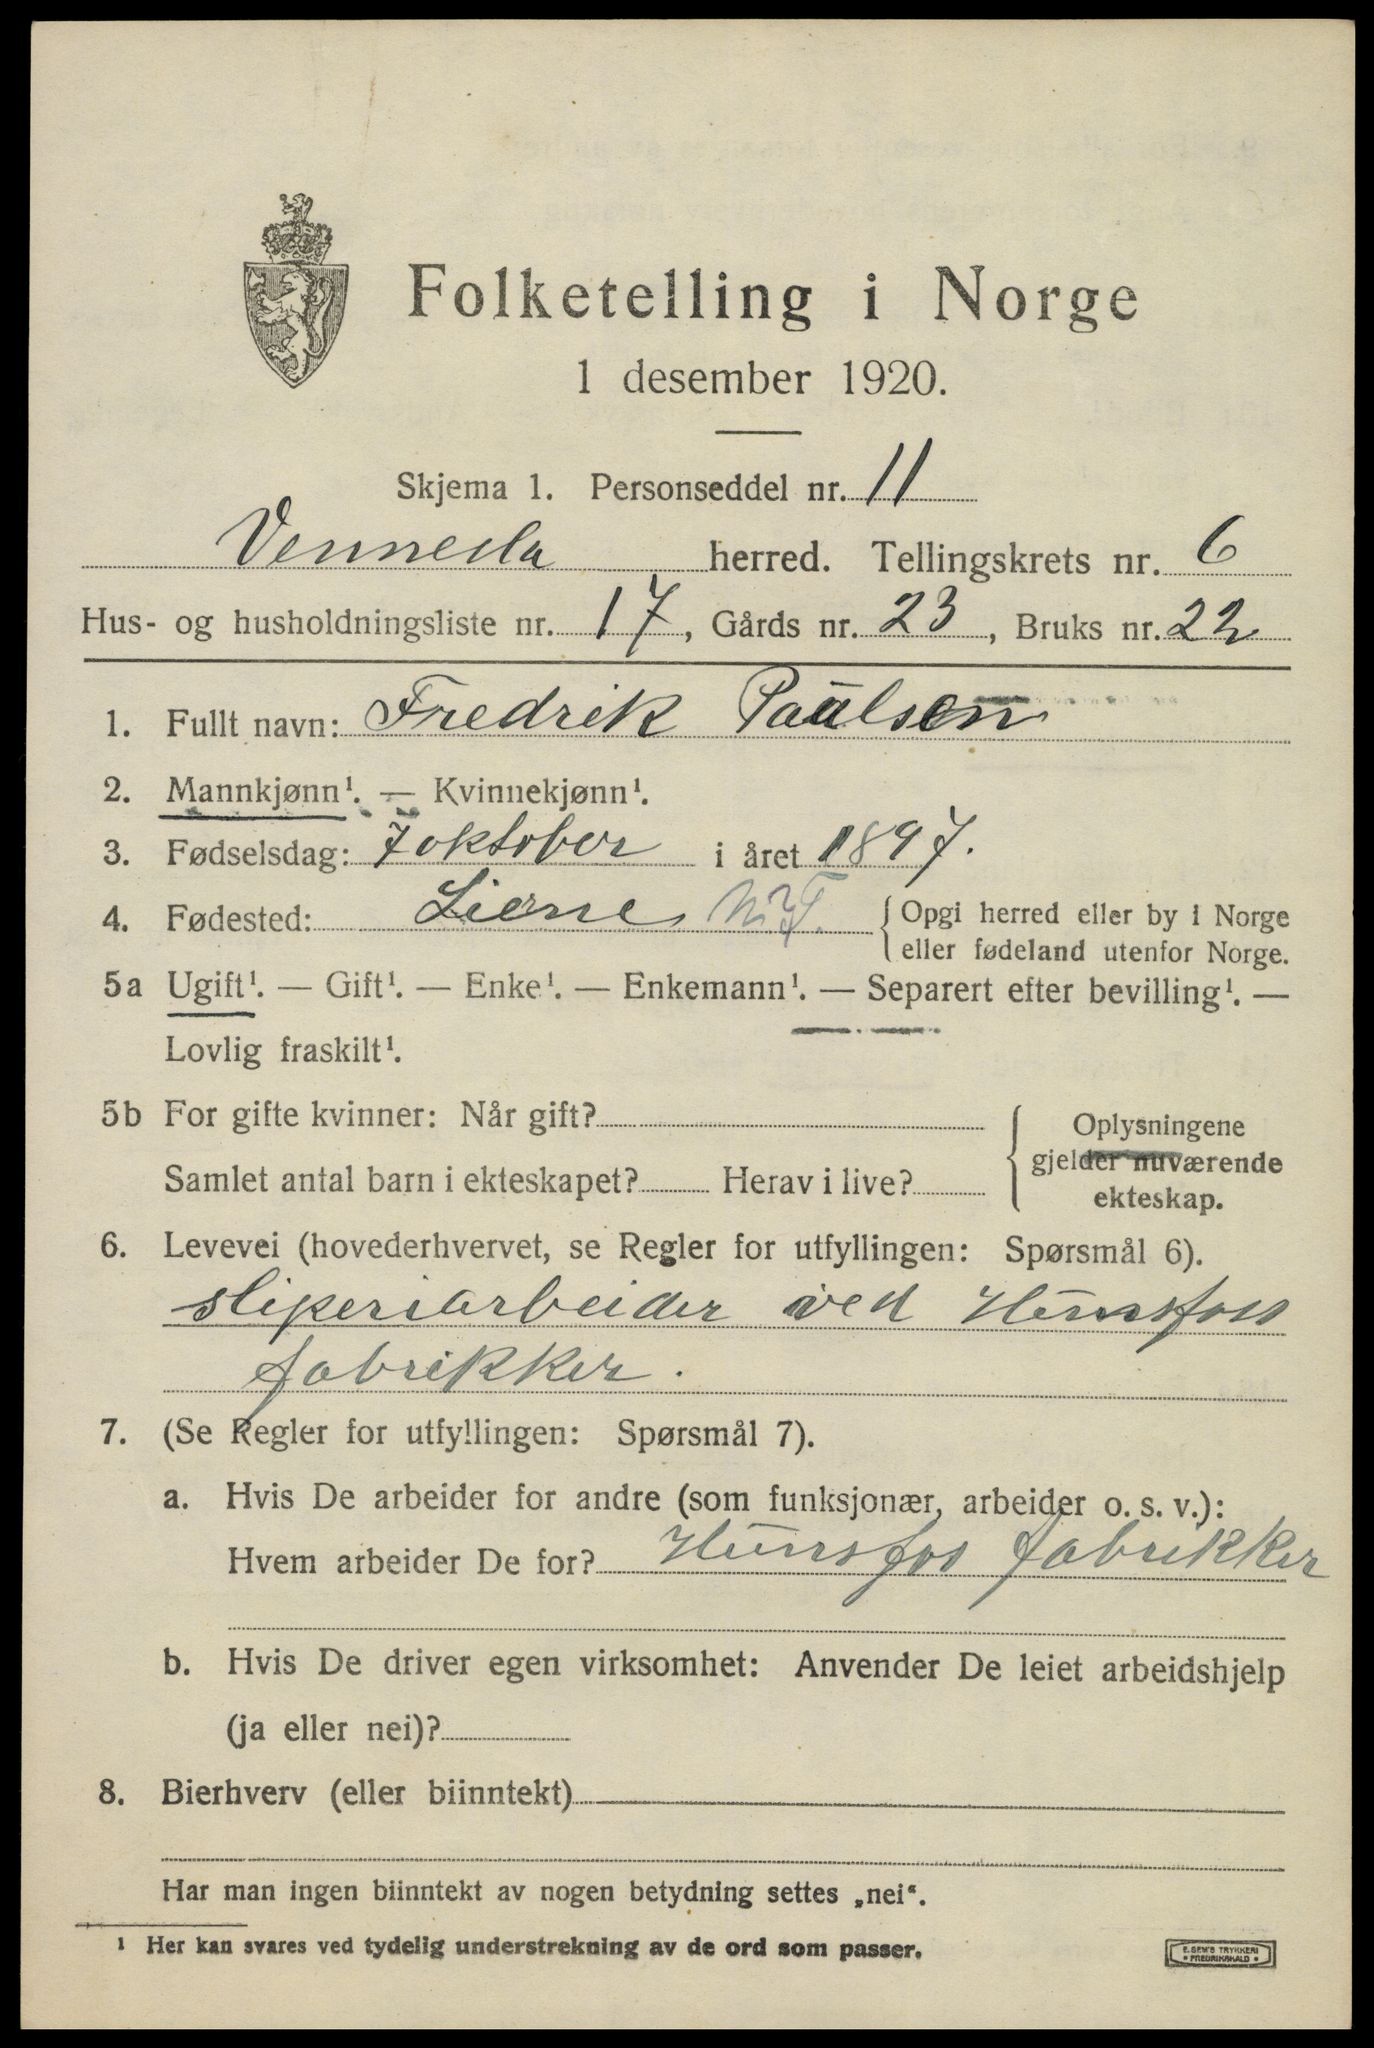 Folketelling i Norge
1 desember 1920.
Skjema 1. Personseddel nr. 11
Vennesla herred. Tellingskrets nr. 6
Hus- og husholdningsliste nr. 17, Gårds nr. 23, Bruks nr. 22
1. Fullt navn: Fredrik Paulsen
2. Mannkjønn¹. — Kvinnekjønn¹.
3. Fødselsdag: 7 oktober i året 1897.
4. Fødested: Lierne N.T. { Opgi herred eller by i Norge
eller fødeland utenfor Norge.
5a Ugift¹. — Gift¹. — Enke¹. — Enkemann¹. — Separert efter bevilling¹. —
Lovlig fraskilt¹.
5b For gifte kvinner: Når gift?
Samlet antal barn i ekteskapet? Herav i live?
Oplysningene
gjelder nuværende
ekteskap.
6. Levevei (hovederhvervet, se Regler for utfyllingen: Spørsmål 6).
sliperiarbeider ved Hunsfoss
fabrikker.
7. (Se Regler for utfyllingen: Spørsmål 7).
a. Hvis De arbeider for andre (som funksjonær, arbeider o. s. v.):
Hvem arbeider De for? Hunsfos fabrikker
b. Hvis De driver egen virksomhet: Anvender De leiet arbeidshjelp
(ja eller nei)?
8. Bierhverv (eller biinntekt)
Har man ingen biinntekt av nogen betydning settes „nei“.
¹ Her kan svares ved tydelig understrekning av de ord som passer.
E. SEM'S TRYKKERI
• FREDRIKSHALD •